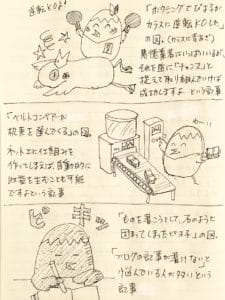 逆転KOす!
「ボクシングでぴよるが
カラスに逆転KOした」
の図。(カラスに青ざ)
異情業者はいっぱいいるが、
それを逆に「チャンス」と
捉えて取り組んでいけば
成功しますよーという記事
わーい
「ベルトコンベアーが
札束を運んでくる」の図。
ネット上に仕組みを
作ってしまえば、自動的に
財産を生むことも可能
ですよという記事
ピ
キッ
「ものを書こうとして、石のように
固まってしまったヒヨコ」の図。
「ブログの記事が書けないと
悩んでいる人が多い」という
記事